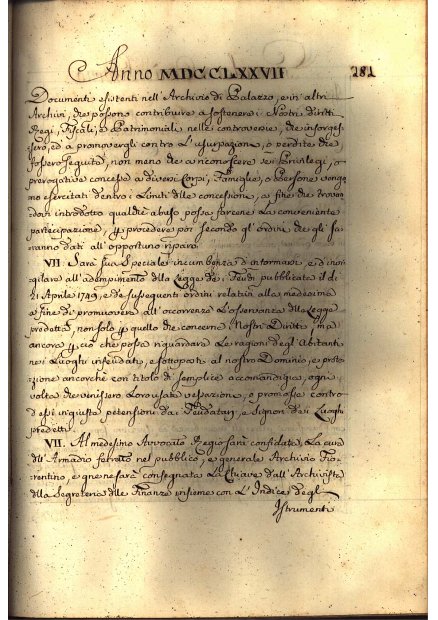 Anno MDCCLXXVII
281
Documenti esistenti nell'Archivio di Palazzo, e in altri
Archivi, che possono contribuire a sostenere i Nostri diritti
Regi, Fiscali, e Patrimoniali nelle controversie, che insorges-
sero, ed a promovergli contro L'usurpazione, o perdite che
fossero seguite, non meno che a riconoscere se i Privilegj, o
prerogative concesse a diversi Corpi, Famiglie, o Persone vengo-
no esercitati dentro i Limiti delle concessioni, a fine che trovan-
dovi introdotto qualche abuso possa farcene La conveniente
partecipazione, e procedere poi secondo gl'ordini che gli sa-
ranno dati all'opportuno riparo.
VII. Sarà sua speciale incumbenza d'informarsi, ed invi-
gilare all'adempimento della Legge de' Feudi pubblicata il dì
21 Aprile 1749, e de susseguenti ordini relativi alla medesima
a fine di promuovere all'occorrenza L'osservanza della Legge
predetta, non solo p quello che concerne i Nostri Diritti, ma
ancora p ciò che possa riguardare Le ragioni degl'Abitanti
nei Luoghi infeudati, e sottoposti al nostro Dominio, e prote-
zione ancorchè con titolo di semplice accomandigia, ogni
volta che venissero Loro usate vessazioni, o promosse contro
d'essi ingiuste pretensioni dai Feudatarj, e Signori dei Luoghi
predetti.
VII. Al medesimo Avvocato Regio sarà confidata La cura
dell'Armadio ferrato nel pubblico, e generale Archivio Fio-
rentino, e gne sarà consegnata La Chiave dall'Archivista
della Segreteria delle Finanze insieme con L'Indice degl'
Istrumenti